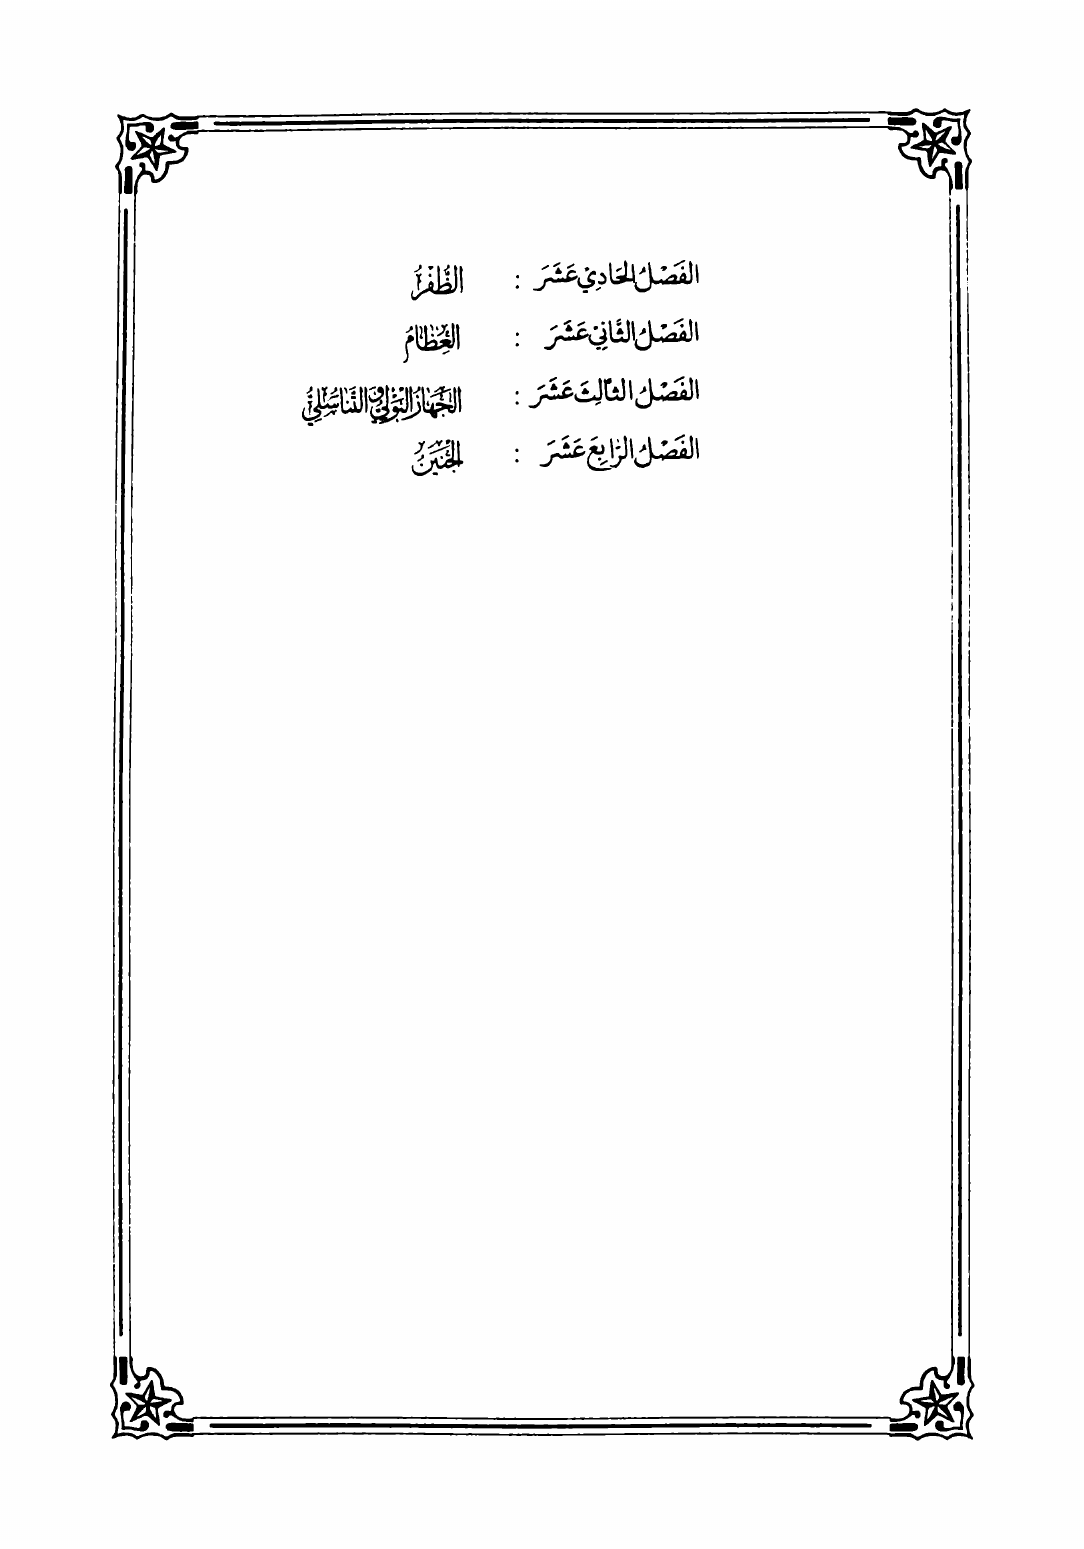 الفَصْلُ الحَادِيْ عَشَرَ : الظُّفْرُ
الفَصْلُ الثَّانِيْ عَشَرَ : العِظَامُ
الفَصْلُ الثَّالِثَ عَشَرَ : الجَهَازُ البَوْلِيُّ وَالتَّنَاسُلِيُّ
الفَصْلُ الرَّابِعَ عَشَرَ : الجَنِيْنُ